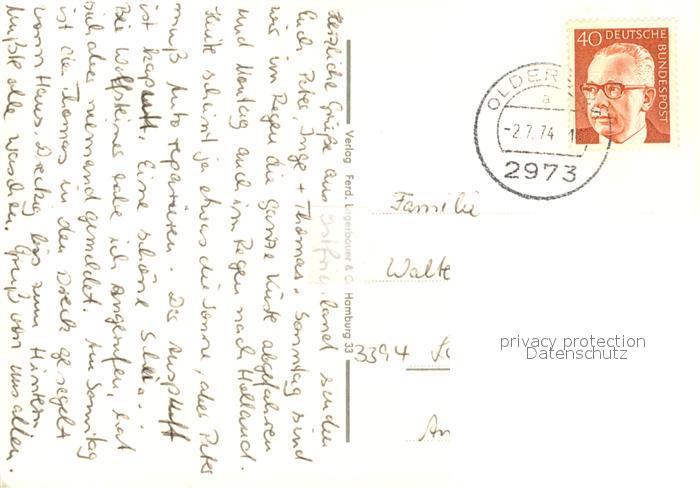 Herzliche Grüße aus Ostfriesland senden
Euch Peter, Inge + Thomas. Sonntag sind
wir im Regen die ganze Küste abgefahren
und Montag auch im Regen nach Holland.
Heute scheint ja etwas die Sonne, aber Peter
muß Auto reparieren. Der Auspuff
ist kaputt. Eine schöne
Bei habe ich angerufen, hat
sich aber niemand gemeldet. Am Sonntag
ist der Thomas in den Dreck gesegelt
vorm Haus. Dreckig bis zum Hintern
mußte alle waschen. Gruß von uns allen.
Verlag Ferd. Lagerbauer & C. Hamburg 33
40 DEUTSCHE
BUNDESPOST
OLDER
a
-2.7.74
2973
Familie
Walte
3394
privacy protection
Datenschutz